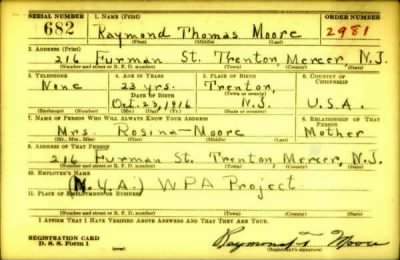 SERIAL NUMBER 1. NAME (Print) ORDER NUMBER
682 Raymond Thomas Moore 2981
(First) (Middle) (Last)
2. ADDRESS (Print)
216 Furman St. Trenton, Mercer, N.J.
(Number and street or R. F. D. number) (Town) (County) (State)
3. TELEPHONE 4. AGE IN YEARS 5. PLACE OF BIRTH 6. COUNTRY OF CITIZENSHIP
None 23 yrs. Trenton, 
DATE OF BIRTH (Town or county)
Oct. 23, 1916 N.J. U.S.A.
(Exchange) (Number) (Mo.) (Day) (Yr.) (State or country)
7. NAME OF PERSON WHO WILL ALWAYS KNOW YOUR ADDRESS 8. RELATIONSHIP OF THAT PERSON
Mrs. Rosina Moore Mother
(Mr., Mrs., Miss) (First) (Middle) (Last)
9. ADDRESS OF THAT PERSON
216 Furman St. Trenton, Mercer, N.J.
(Number and street or R. F. D. number) (Town) (County) (State)
10. EMPLOYER'S NAME
(N.Y.A.) WPA Project
11. PLACE OF EMPLOYMENT OR BUSINESS
(Number and street or R. F. D. number) (Town) (County) (State)
I AFFIRM THAT I HAVE VERIFIED ABOVE ANSWERS AND THAT THEY ARE TRUE.
REGISTRATION CARD
D. S. S. Form 1 Raymond T. Moore
(Registrant's signature)